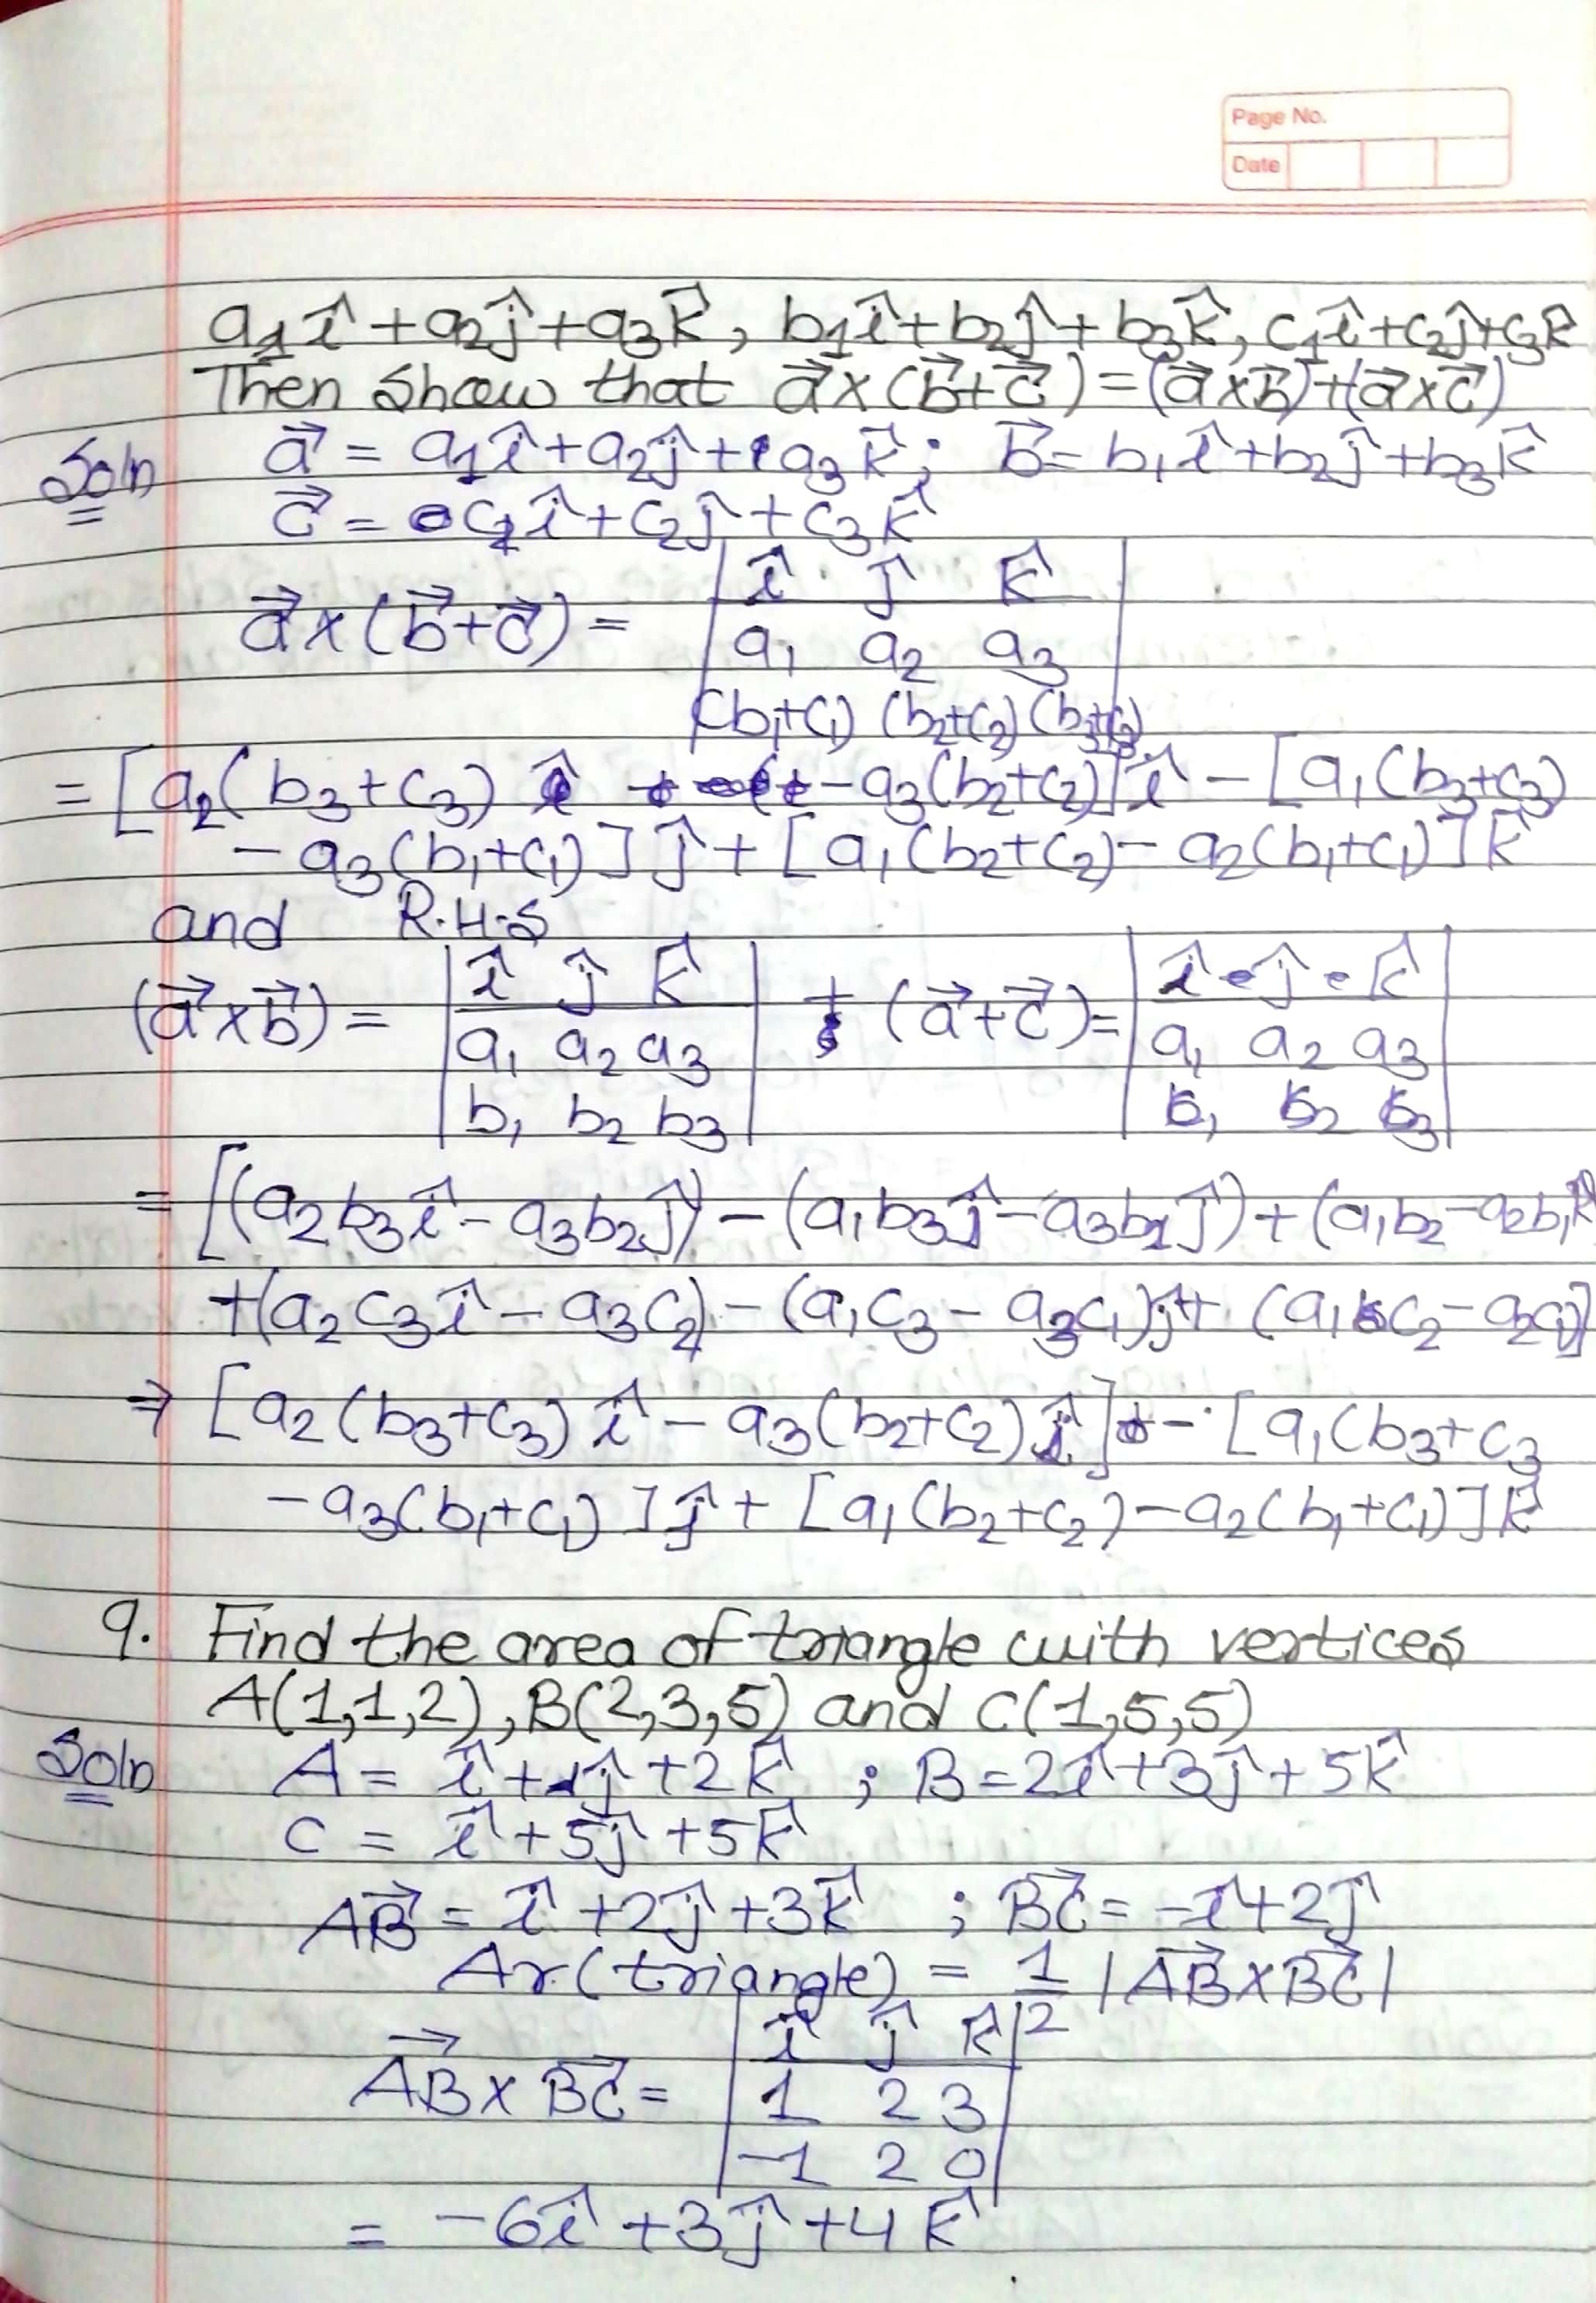 Page No.
Date
a₁î + a₂ĵ + a₃k̂, b₁î + b₂ĵ + b₃k̂, c₁î + c₂ĵ + c₃k̂
Then show that a⃗×(b⃗+c⃗) = (a⃗×b⃗)+(a⃗×c⃗)
Soln a⃗ = a₁î + a₂ĵ + a₃k̂ ; b⃗ = b₁î + b₂ĵ + b₃k̂
c⃗ = c₁î + c₂ĵ + c₃k̂
î ĵ k̂
a⃗×(b⃗+c⃗) = | a₁ a₂ a₃ |
(b₁+c₁) (b₂+c₂) (b₃+c₃)
= [a₂(b₃+c₃) - a₃(b₂+c₂)]î - [a₁(b₃+c₃)
- a₃(b₁+c₁)]ĵ + [a₁(b₂+c₂) - a₂(b₁+c₁)]k̂
and R.H.S
î ĵ k̂ î ĵ k̂
(a⃗×b⃗) = | a₁ a₂ a₃ | + (a⃗+c⃗) = | a₁ a₂ a₃ |
b₁ b₂ b₃
= [(a₂b₃î - a₃b₂ĵ) - (a₁b₃ĵ - a₃b₁ĵ) + (a₁b₂ - a₂b₁k̂
+(a₂c₃î - a₃c₂) - (a₁c₃ - a₃c₁)ĵ + (a₁c₂ - a₂c₁)]
⇒ [a₂(b₃+c₃)î - a₃(b₂+c₂)î] - [a₁(b₃+c₃
- a₃(b₁+c₁)]ĵ + [a₁(b₂+c₂) - a₂(b₁+c₁)]k̂
9. Find the area of triangle with vertices
A(1,1,2), B(2,3,5) and C(1,5,5)
Soln A = î + 1ĵ + 2k̂ ; B = 2î + 3ĵ + 5k̂
C = î + 5ĵ + 5k̂
AB⃗ = î + 2ĵ + 3k̂ ; BC⃗ = -î + 2ĵ
Ar(triangle) = 1/2 |AB⃗ × BC⃗|
î ĵ k̂
AB⃗ × BC⃗ = | 1 2 3 |
-1 2 0
= -6î + 3ĵ + 4k̂